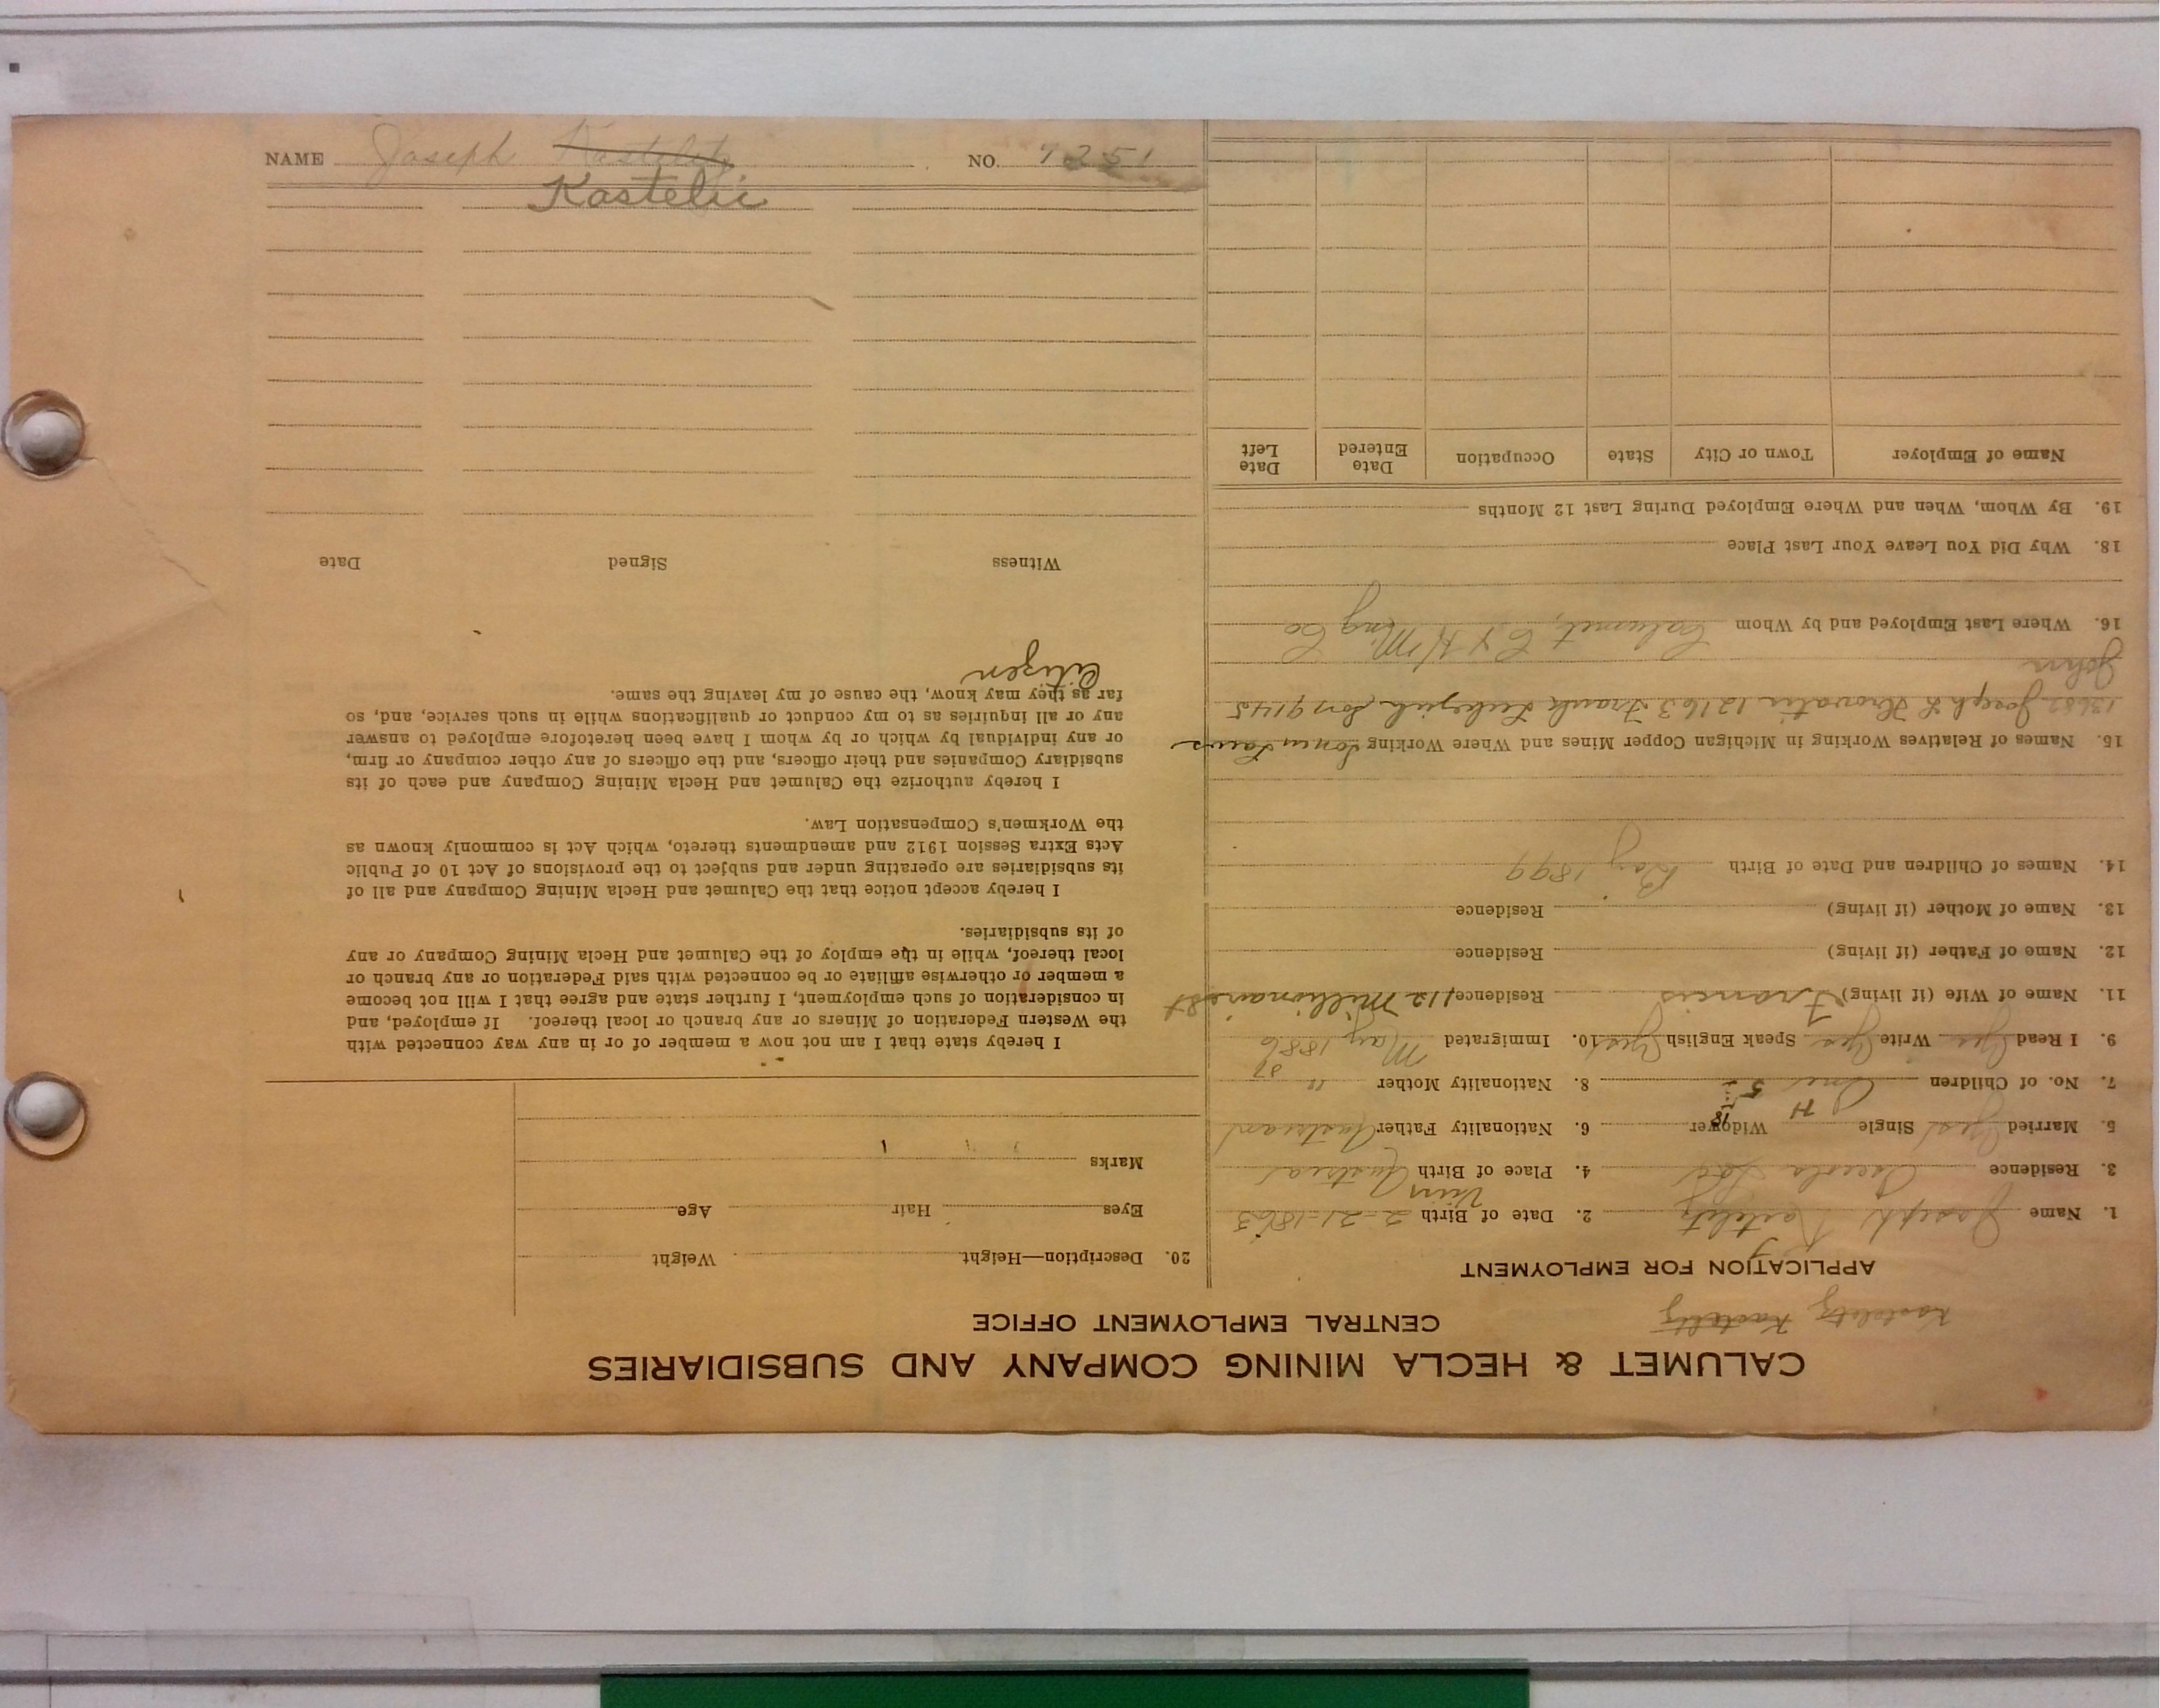 NAME Joseph Kasteletz NO. 7251
Kastelic
CALUMET & HECLA MINING COMPANY AND SUBSIDIARIES
CENTRAL EMPLOYMENT OFFICE
Kosteletz
APPLICATION FOR EMPLOYMENT
1. Name Joseph Kasteletz 2. Date of Birth 2-21-1863
3. Residence Osceola Loc 4. Place of Birth Austria
5. Married Yes Single Widower 6. Nationality Father Austrian
7. No. of Children One 5 8. Nationality Mother "
9. I Read Yes Write Yes Speak English Yes 10. Immigrated May 1886
87
11. Name of Wife (if living) Francis Residence 112 Millionaire St
12. Name of Father (if living) Residence
13. Name of Mother (if living) Residence
14. Names of Children and Date of Birth Boy 1899
15. Names of Relatives Working in Michigan Copper Mines and Where Working
Joseph L 12163 Frank Son 9145
John
16. Where Last Employed and by Whom Calumet, C & H Mng Co
18. Why Did You Leave Your Last Place
19. By Whom, When and Where Employed During Last 12 Months
Name of Employer Town or City State Occupation Date Entered Date Left
20. Description—Height Weight
Eyes Hair Age
Marks
I hereby state that I am not now a member of or in any way connected with
the Western Federation of Miners or any branch or local thereof. If employed, and
in consideration of such employment, I further state and agree that I will not become
a member or otherwise affiliate or be connected with said Federation or any branch or
local thereof, while in the employ of the Calumet and Hecla Mining Company or any
of its subsidiaries.
I hereby accept notice that the Calumet and Hecla Mining Company and all of
its subsidiaries are operating under and subject to the provisions of Act 10 of Public
Acts Extra Session 1912 and amendments thereto, which Act is commonly known as
the Workmen's Compensation Law.
I hereby authorize the Calumet and Hecla Mining Company and each of its
subsidiary Companies and their officers, and the officers of any other company or firm,
or any individual by which or by whom I have been heretofore employed to answer
any or all inquiries as to my conduct or qualifications while in such service, and, so
far as they may know, the cause of my leaving the same.
Citizen
Witness Signed Date